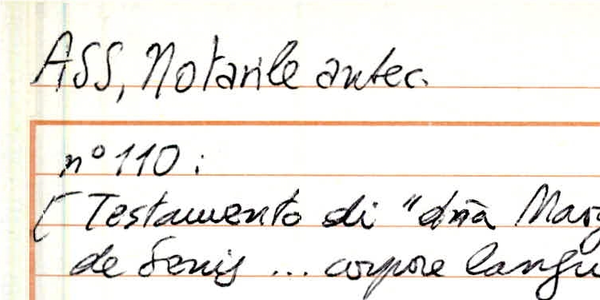 ASS, Notarile antec.
n° 110:
[Testamento di "dña Marg
de Senis ... corpore langu